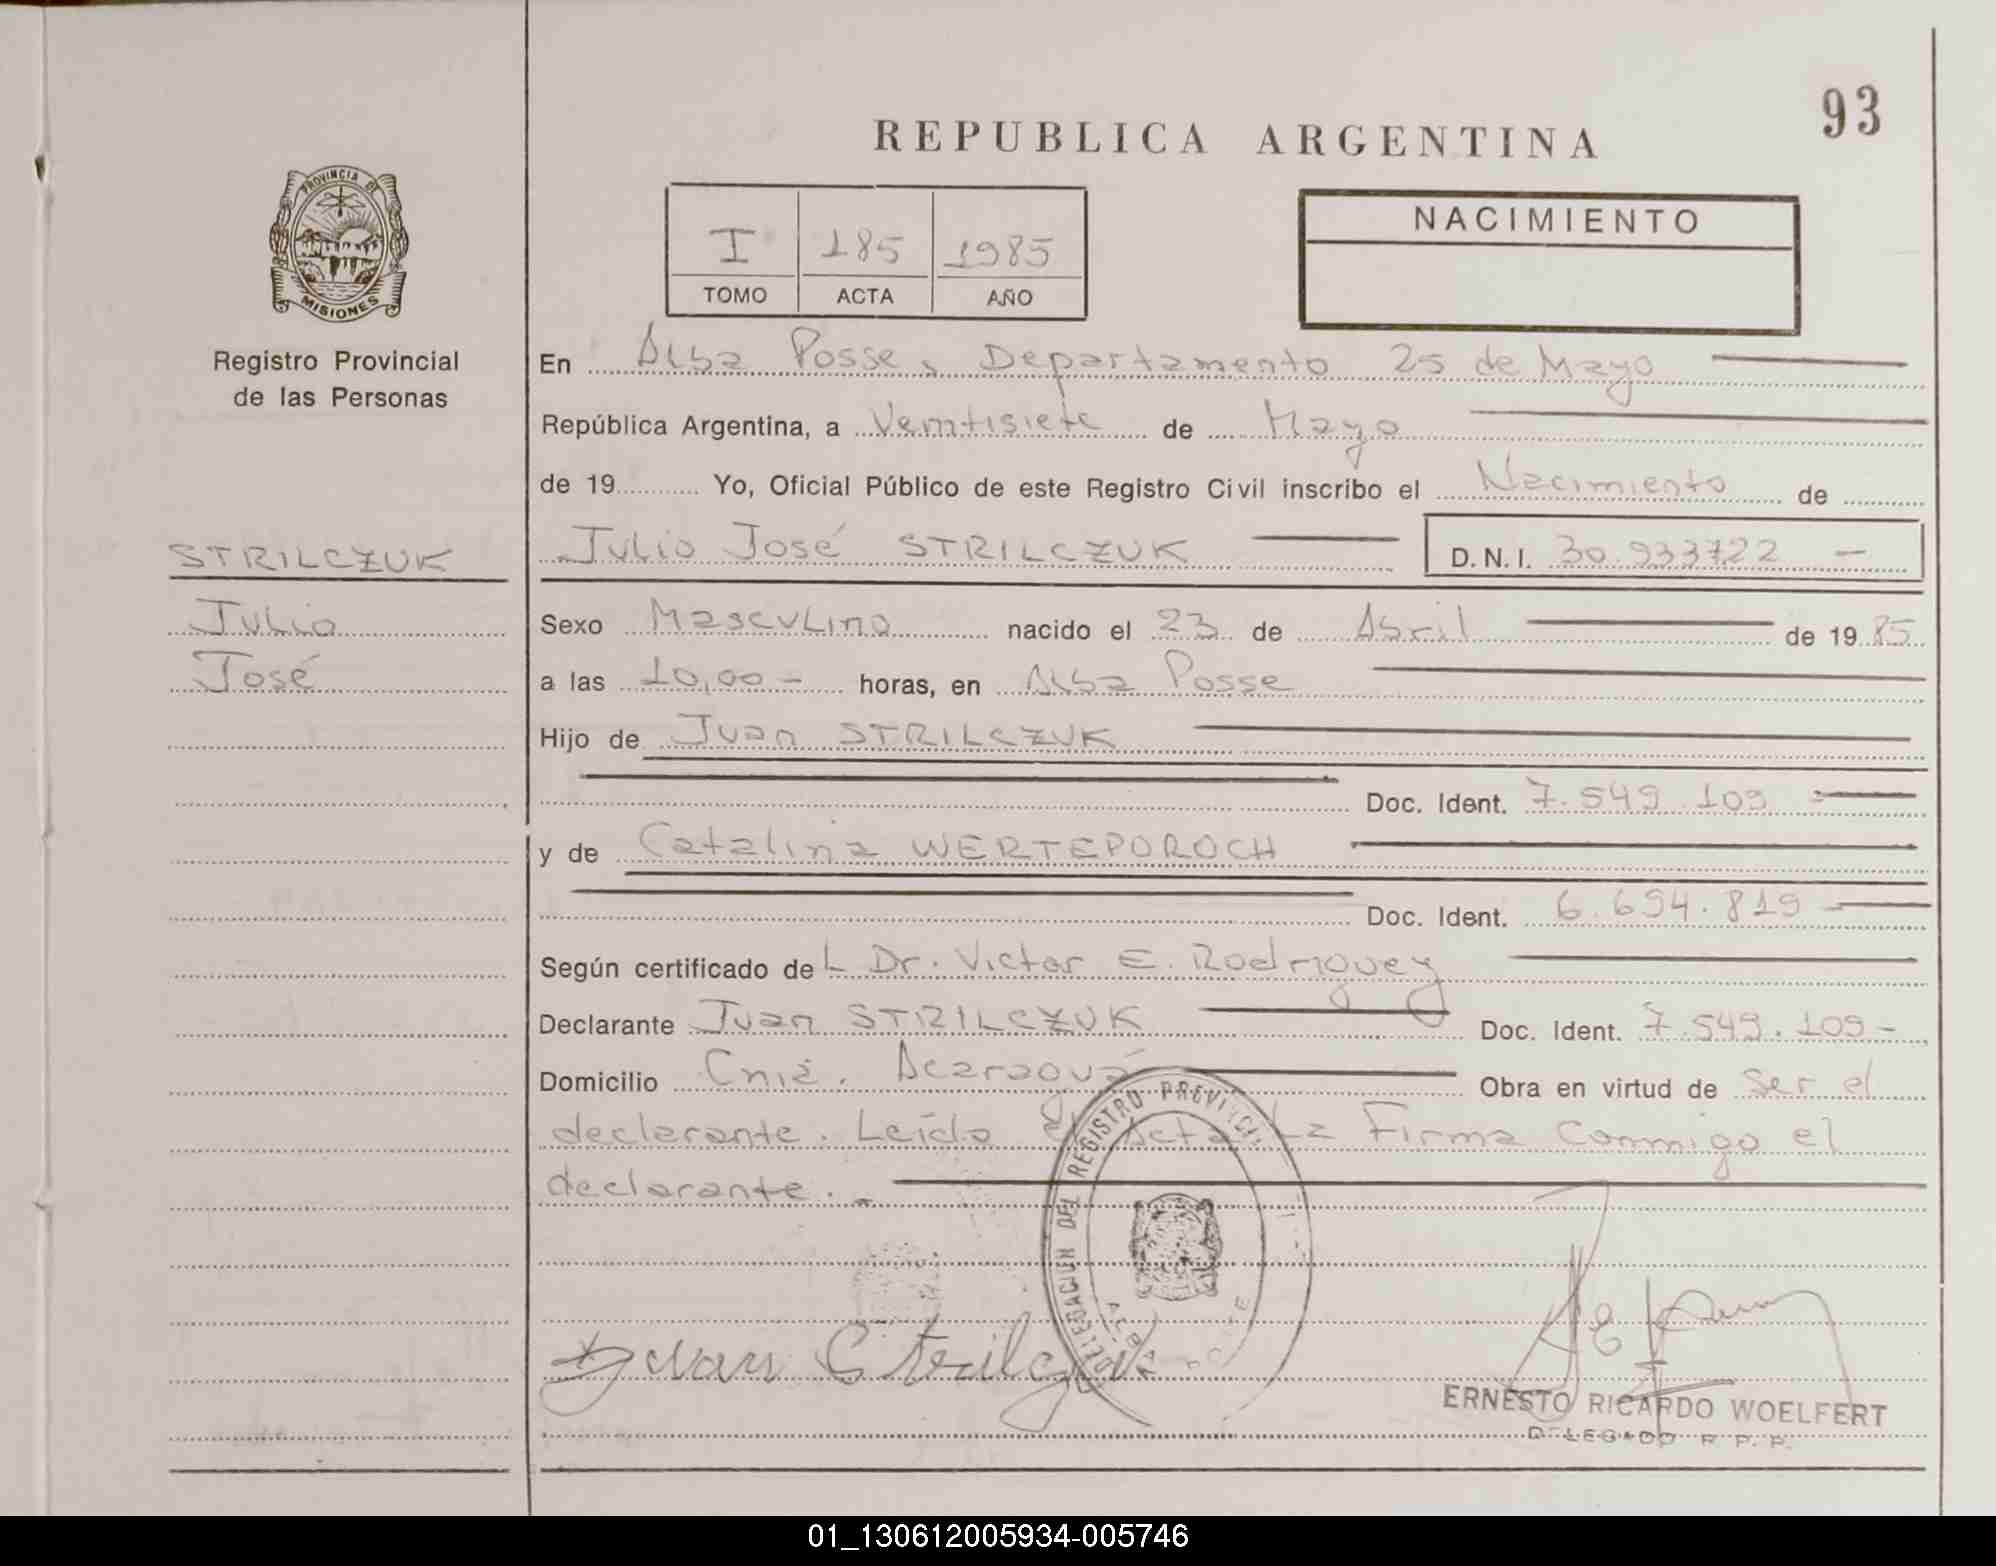 93
REPUBLICA ARGENTINA
PROVINCIA DE
MISIONES
Registro Provincial
de las Personas
I 185 1985
TOMO ACTA AÑO
NACIMIENTO
En Alba Posse, Departamento 25 de Mayo
República Argentina, a Veintisiete de Mayo
de 19 Yo, Oficial Público de este Registro Civil inscribo el Nacimiento de
Julio José STRILCZUK D.N.I. 30.933722 -
STRILCZUK
Julio
José
Sexo Masculino nacido el 23 de Abril de 1985
a las 10,00 - horas, en Alba Posse
Hijo de Juan STRILCZUK
Doc. Ident. 7.549.109
y de Catalina WERTEPOROCH
Doc. Ident. 6.694.819
Según certificado del Dr. Victor E. Rodriguez
Declarante Juan STRILCZUK Doc. Ident. 7.549.109-
Domicilio Cnia. Acaraguá Obra en virtud de ser el
declarante. Leída el Acta La Firma Conmigo el
declarante.
DELEGACION DEL REGISTRO PROVINCIAL
ALBA POSSE
Juan Strilczuk
ERNESTO RICARDO WOELFERT
DELEGADO R. P. P.
01_130612005934-005746